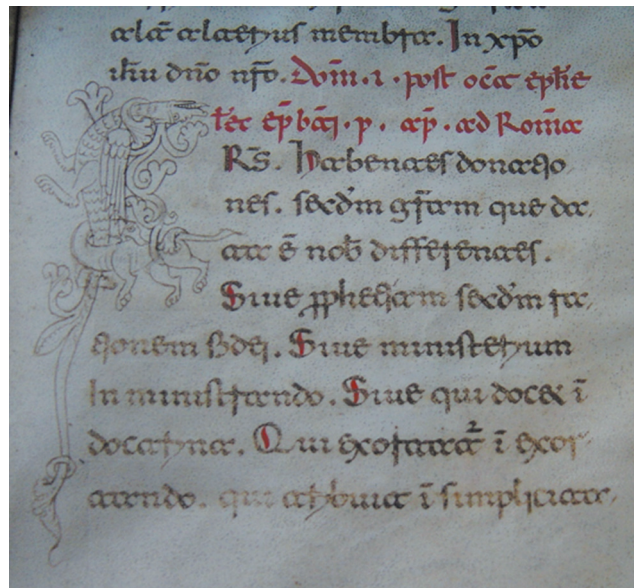 alt̄ alterius membra. In xp̄o
ih̄u dn̄o nr̄o. Dom̄. i. post oct̄ eph̄ie
lec̄ ep̄ beati. p. ap̄. ad Roma
FR̄S. Habentes donatio,
nes. secd̄m gr̄am que da,
ta ē nob̄ differentes.
Siue ꝓphetiam secd̄m ra,
tionem fidei. Siue ministerium
In ministrando. Siue qui docet ī
doctrina. Qui exortatur ī exor,
tando. qui tribuit ī simplicitate,